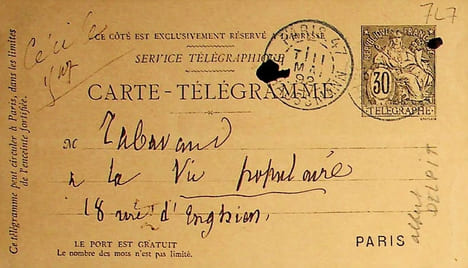 727
CE CÔTÉ EST EXCLUSIVEMENT RÉSERVÉ À L'ADRESSE
SERVICE TÉLÉGRAPHIQUE
CARTE-TÉLÉGRAMME
PARIS 47
MAI
30
TÉLÉGRAPHE
Ce télégramme peut circuler à Paris, dans les limites
de l'enceinte fortifiée.
Cécile
M Tabarand
à la Vie populaire
18 rue d'Enghien.
LE PORT EST GRATUIT
Le nombre des mots n'est pas limité.
PARIS
albert
DELPIT